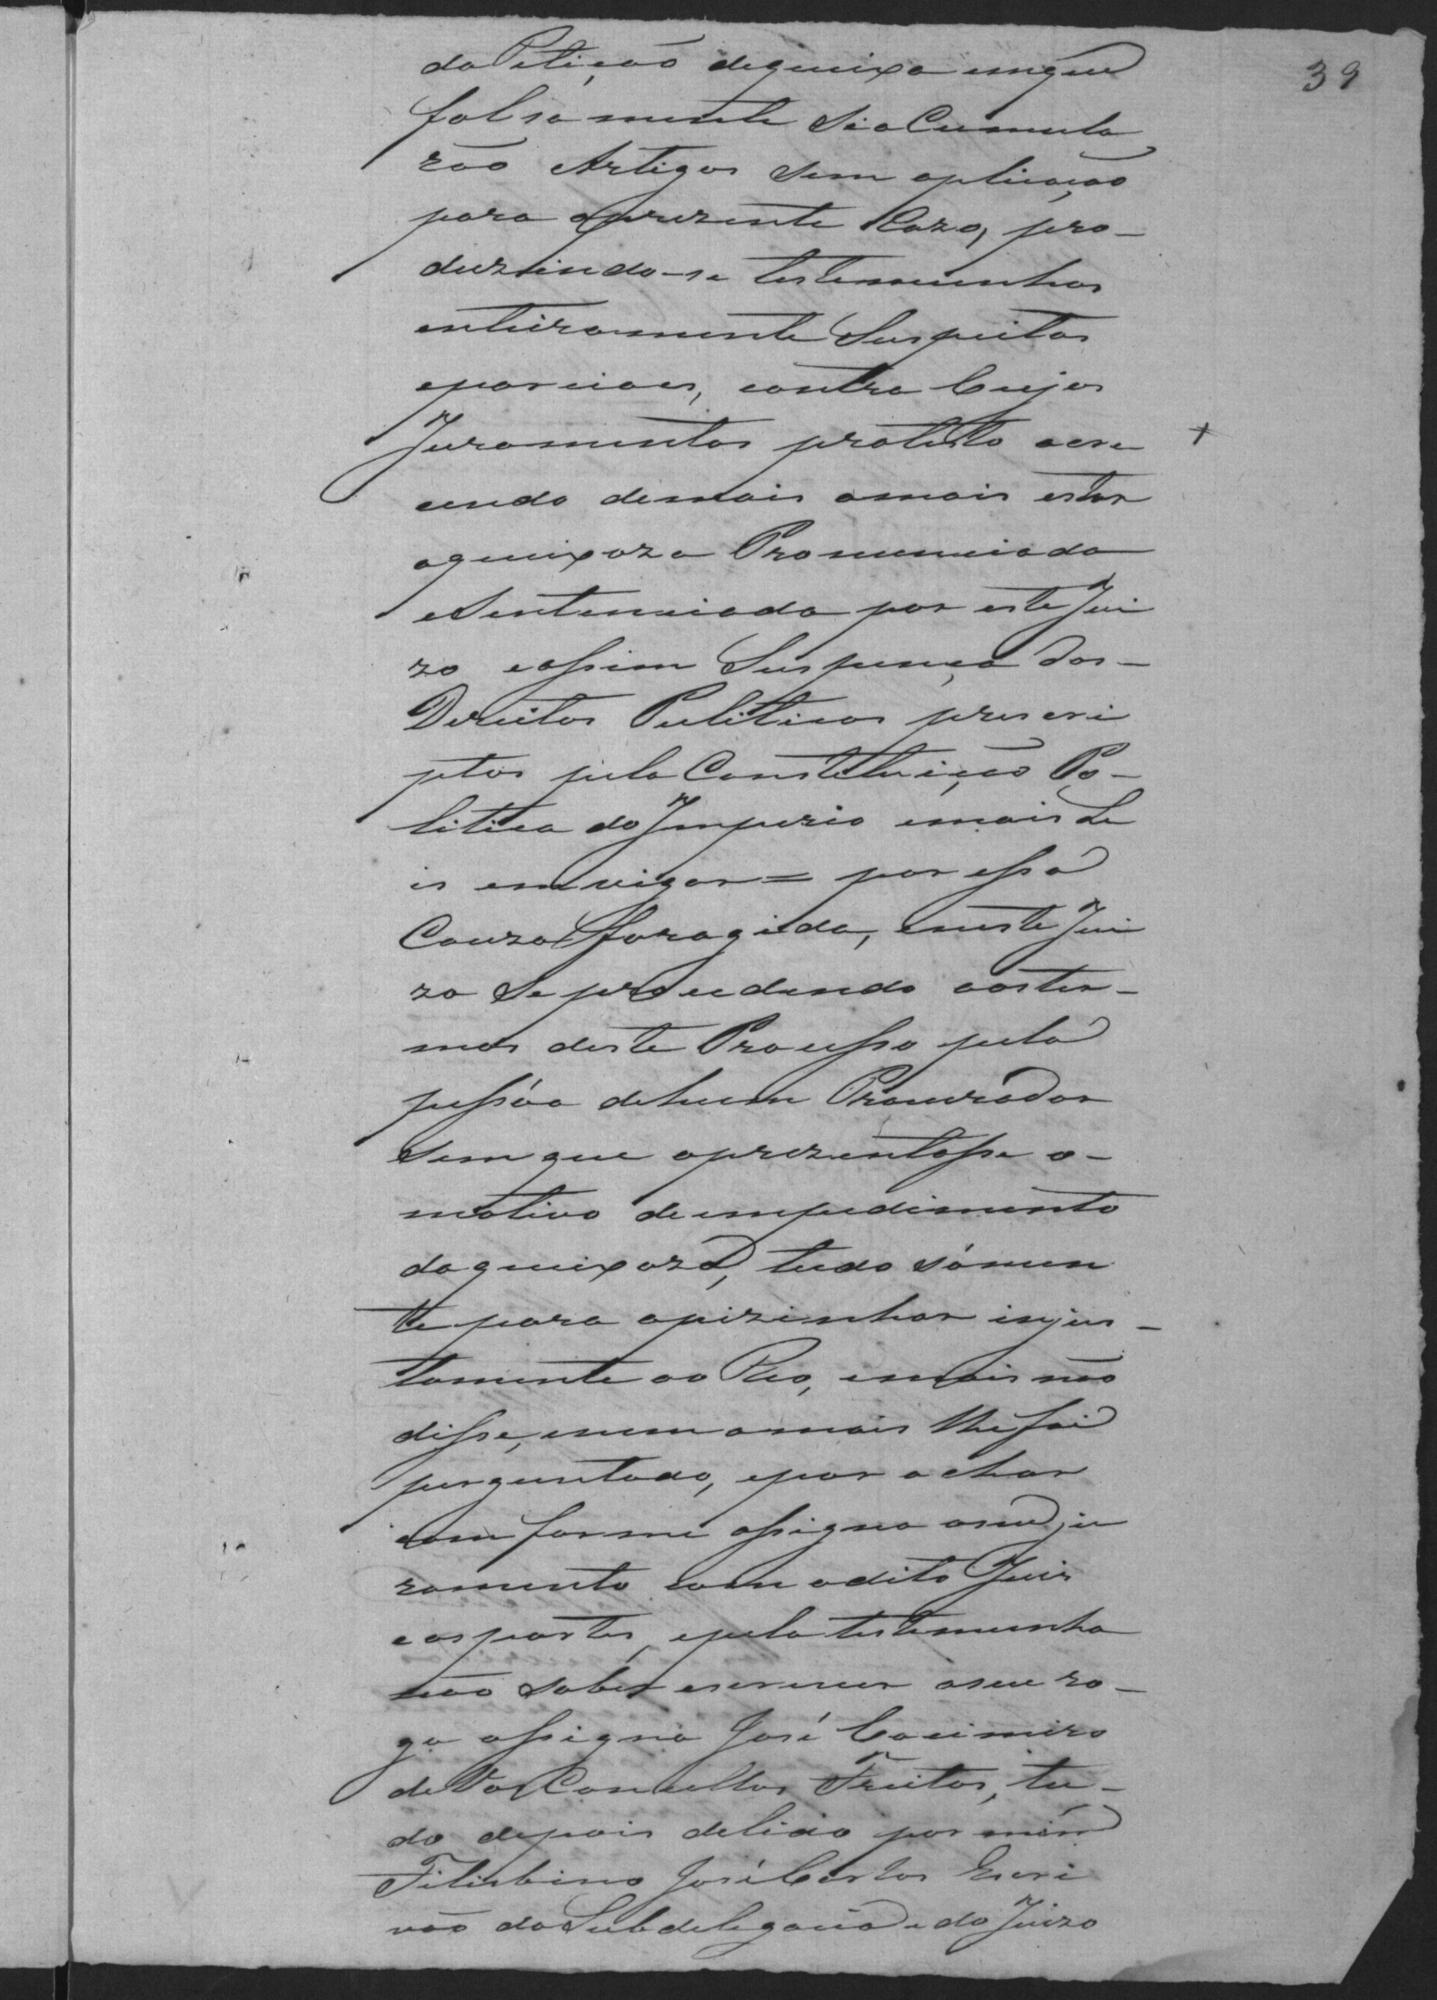 39
da Petiçaõ dequeixa emque
falsamente seaCumula
raõ Artigos sem aplicaçaõ
para oprezente Cazo, pro-
duzindo-se testemunhas
enteiramente Suspeitas
eparciaes, contra Cujos
Juramentos protesto acre
cendo demais amais estar
aqueixoza Pronunciada
eSentenciada por este Jui
zo eassim Suspença dos-
Direitos Puliticos prescri
ptos pela Constetuiçaõ Po-
litica do Imperio emais Le
is em vigor = por essa
Cauza foragida, eneste Jui
zo Se procedendo aoster-
mos deste Processo pela
pessôa dehum Procurador
Semque aprezentasse o-
motivo deempedimento
daqueixoza, tudo sómen
te para apizinhar injus-
tamente ao Reo, emais não
disse, enem amais lhe foi
perguntado, epor achar
comforme assigna oseu ju
ramento com odito Juis
easpartes, epela testemunha
não saber escrever aseu ro-
go assigna José Cacimiro
deVasConcellos Freitas, tu-
do depois delido por mim
Filisbino José Carlos Escri
vão da Subdelegacia e do Juizo